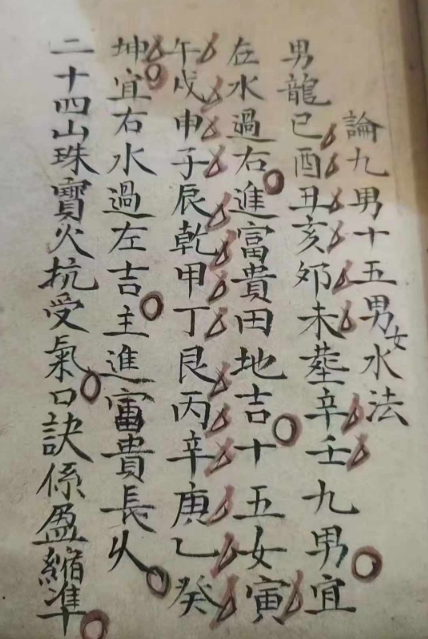 論九男十五男女水法
男龍巳酉丑亥夘未辛壬九男宜
在水過右進富貴田地吉十五女寅
午戌申子辰乾甲丁艮丙辛庚乙癸
坤宜右水過左吉主進富貴長久
二十四山珠寶火抗受氣口訣係盈縮準